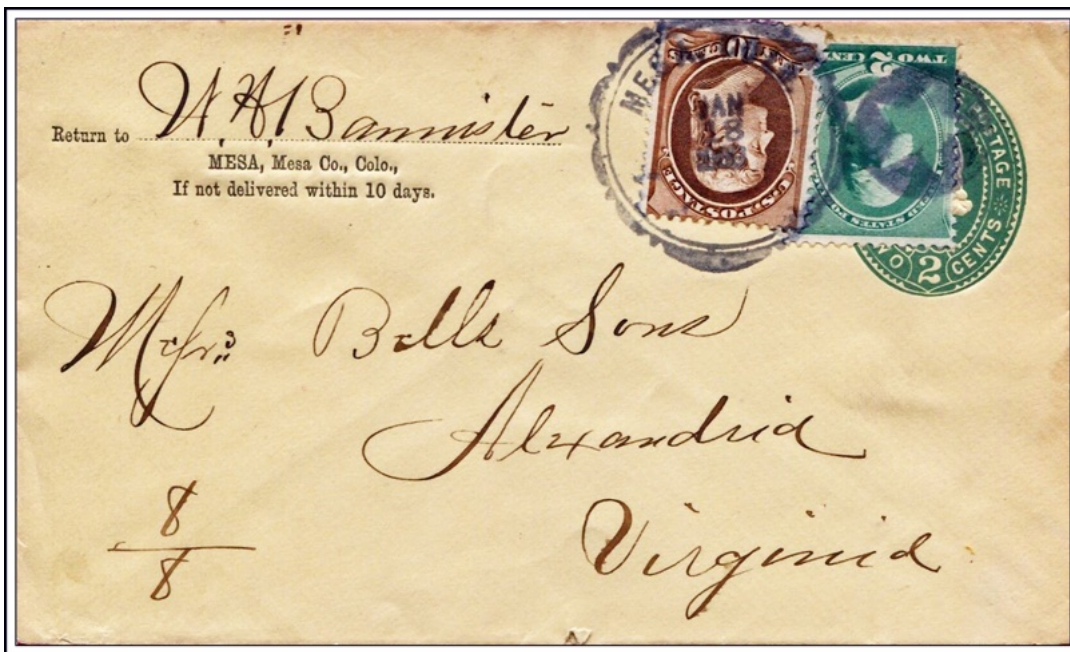 Return to W. H. Bannister
MESA, Mesa Co., Colo.,
If not delivered within 10 days.
MESA
JAN
18
10
U.S. POSTAGE
TWO 2 CENT
STATES PO
POSTAGE
TWO 2 CENTS
Messrs. Bells Sons
Alexandria
Virginia
8
8